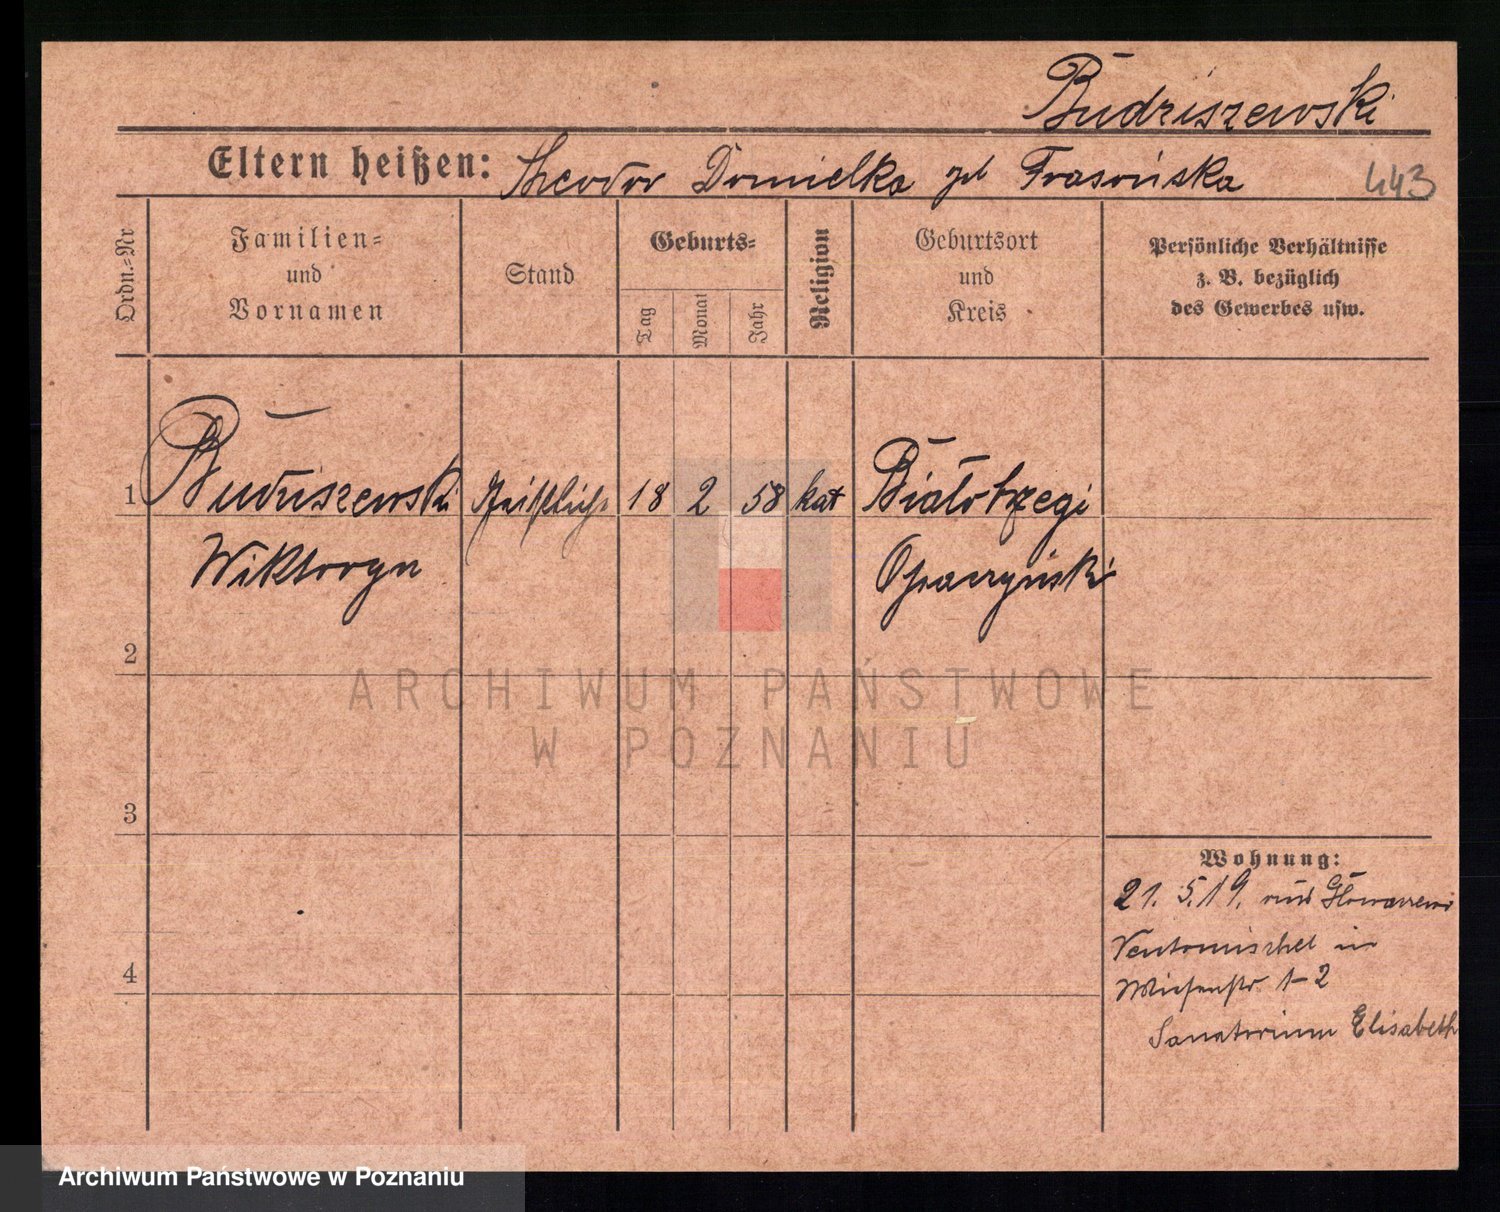 Budziszewski
Eltern heißen: Theodor Domicella geb Frasońska
443
Ordn.-Nr
Familien-
und
Vornamen
Stand
Geburts-
Tag
Monat
Jahr
Religion
Geburtsort
und
Kreis
Persönliche Verhältnisse
z. B. bezüglich
des Gewerbes usw.
1 Budziszewski Geistlicher 18 2 58 kat Białobrzegi
Wiktoryn
2
3
4
Wohnung:
21. 5. 19. aus
in
Wiesenstr 1-2
Sanatorium Elisabeth
ARCHIWUM PAŃSTWOWE
W POZNANIU
Archiwum Państwowe w Poznaniu